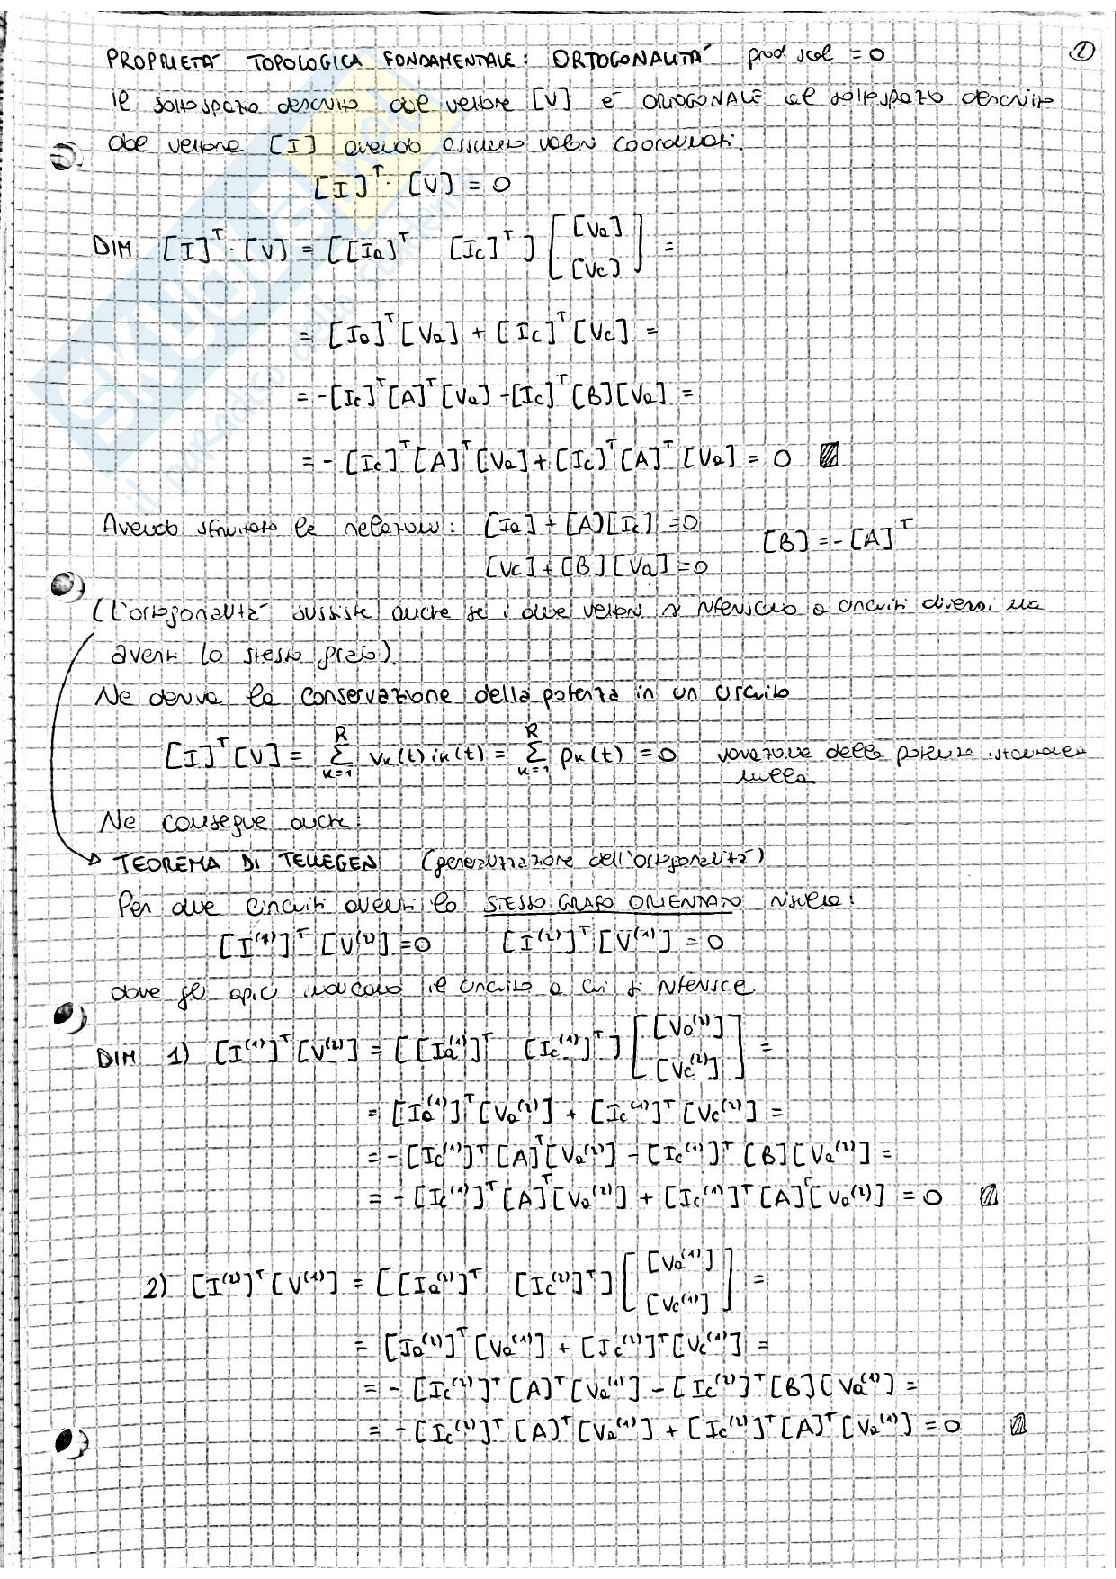 PROPRIETÀ TOPOLOGICA FONDAMENTALE: ORTOGONALITÀ prod scal = 0
1
il sottospazio descritto dal vettore [V] è ORTOGONALE al sottospazio descritto
dal vettore [I] avendo assunto valori coordinati.
[I]^T · [V] = 0
DIM [I]^T · [V] = [[Ia]^T [Ic]^T] [[Va] [Vc]] =
= [Ia]^T [Va] + [Ic]^T [Vc] =
= -[Ic]^T [A]^T [Va] - [Ic]^T [B] [Va] =
= - [Ic]^T [A]^T [Va] + [Ic]^T [A]^T [Va] = 0
Avendo sfruttato le relazioni: [Ia] + [A][Ic] = 0
[B] = -[A]^T
[Vc] + [B][Va] = 0
(L'ortogonalità sussiste anche se i due vettori si riferiscono a circuiti diversi ma
aventi lo stesso grafo)
Ne deriva la conservazione della potenza in un circuito
[I]^T [V] = Σ_{k=1}^{R} vk(t) ik(t) = Σ_{k=1}^{R} pk(t) = 0 della potenza istantanea
nulla
Ne consegue anche:
TEOREMA DI TELLEGEN (generalizzazione dell'ortogonalità)
Per due circuiti aventi lo STESSO GRAFO ORIENTATO risulta:
[I^(1)]^T [V^(2)] = 0 [I^(2)]^T [V^(1)] = 0
dove gli apici indicano il circuito a cui si riferisce
DIM 1) [I^(1)]^T [V^(2)] = [[Ia^(1)]^T [Ic^(1)]^T] [[Va^(2)] [Vc^(2)]] =
= [Ia^(1)]^T [Va^(2)] + [Ic^(1)]^T [Vc^(2)] =
= - [Ic^(1)]^T [A]^T [Va^(2)] - [Ic^(1)]^T [B] [Va^(2)] =
= - [Ic^(1)]^T [A]^T [Va^(2)] + [Ic^(1)]^T [A]^T [Va^(2)] = 0
2) [I^(2)]^T [V^(1)] = [[Ia^(2)]^T [Ic^(2)]^T] [[Va^(1)] [Vc^(1)]] =
= [Ia^(2)]^T [Va^(1)] + [Ic^(2)]^T [Vc^(1)] =
= - [Ic^(2)]^T [A]^T [Va^(1)] - [Ic^(2)]^T [B] [Va^(1)] =
= - [Ic^(2)]^T [A]^T [Va^(1)] + [Ic^(2)]^T [A]^T [Va^(1)] = 0